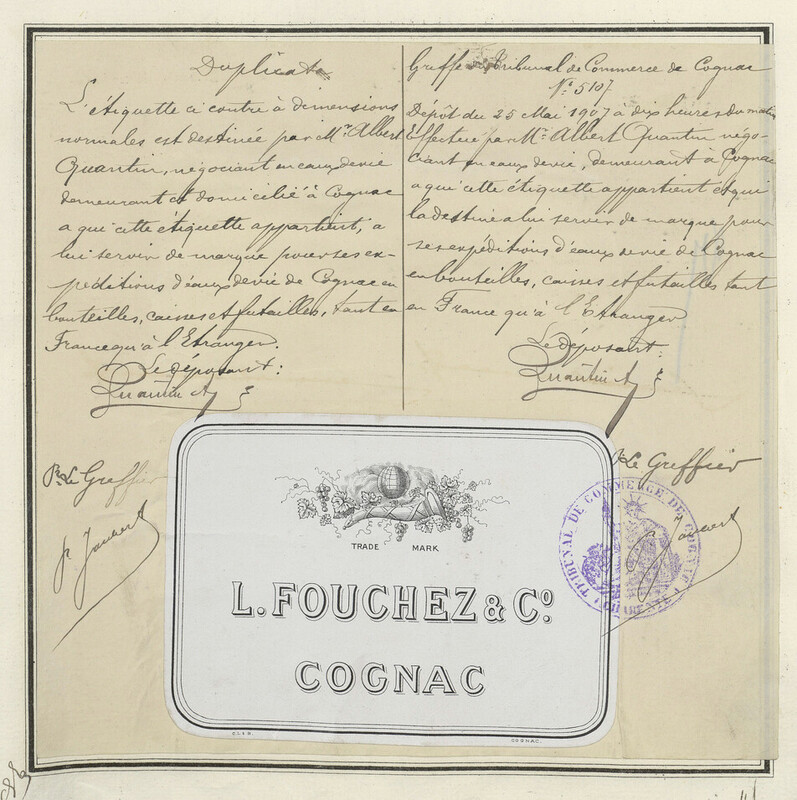 Duplicata
L'étiquette ci contre à dimensions
normales est destinée par Mr. Albert
Quantin, négociant en eaux de vie
demeurant et domicilié à Cognac
a qui cette étiquette appartient, a
lui servir de marque pour ses ex-
péditions d'eaux de vie de Cognac en
bouteilles, caisses et futailles, tant en
France qu'à l'Etranger.
Le déposant:
Quantin A
Pr. Le Greffier
Greffe du Tribunal de Commerce de Cognac
No 5107
Dépôt du 25 Mai 1907 à dix heures du matin
Effectué par Mr. Albert Quantin négo-
ciant en eaux de vie, demeurant à Cognac
a qui cette étiquette appartient et qui
la destine a lui servir de marque pour
ses expéditions d'eaux de vie de Cognac
en bouteilles, caisses et futailles tant
en France qu'à l'Etranger
Le déposant:
Quantin A
Le Greffier
TRIBUNAL DE COMMERCE DE COGNAC
TRADE MARK
L. FOUCHEZ & Co.
COGNAC
COGNAC.